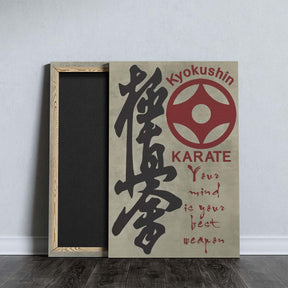 極真会
Kyokushin
KARATE
Your
mind
is your
best
weapon